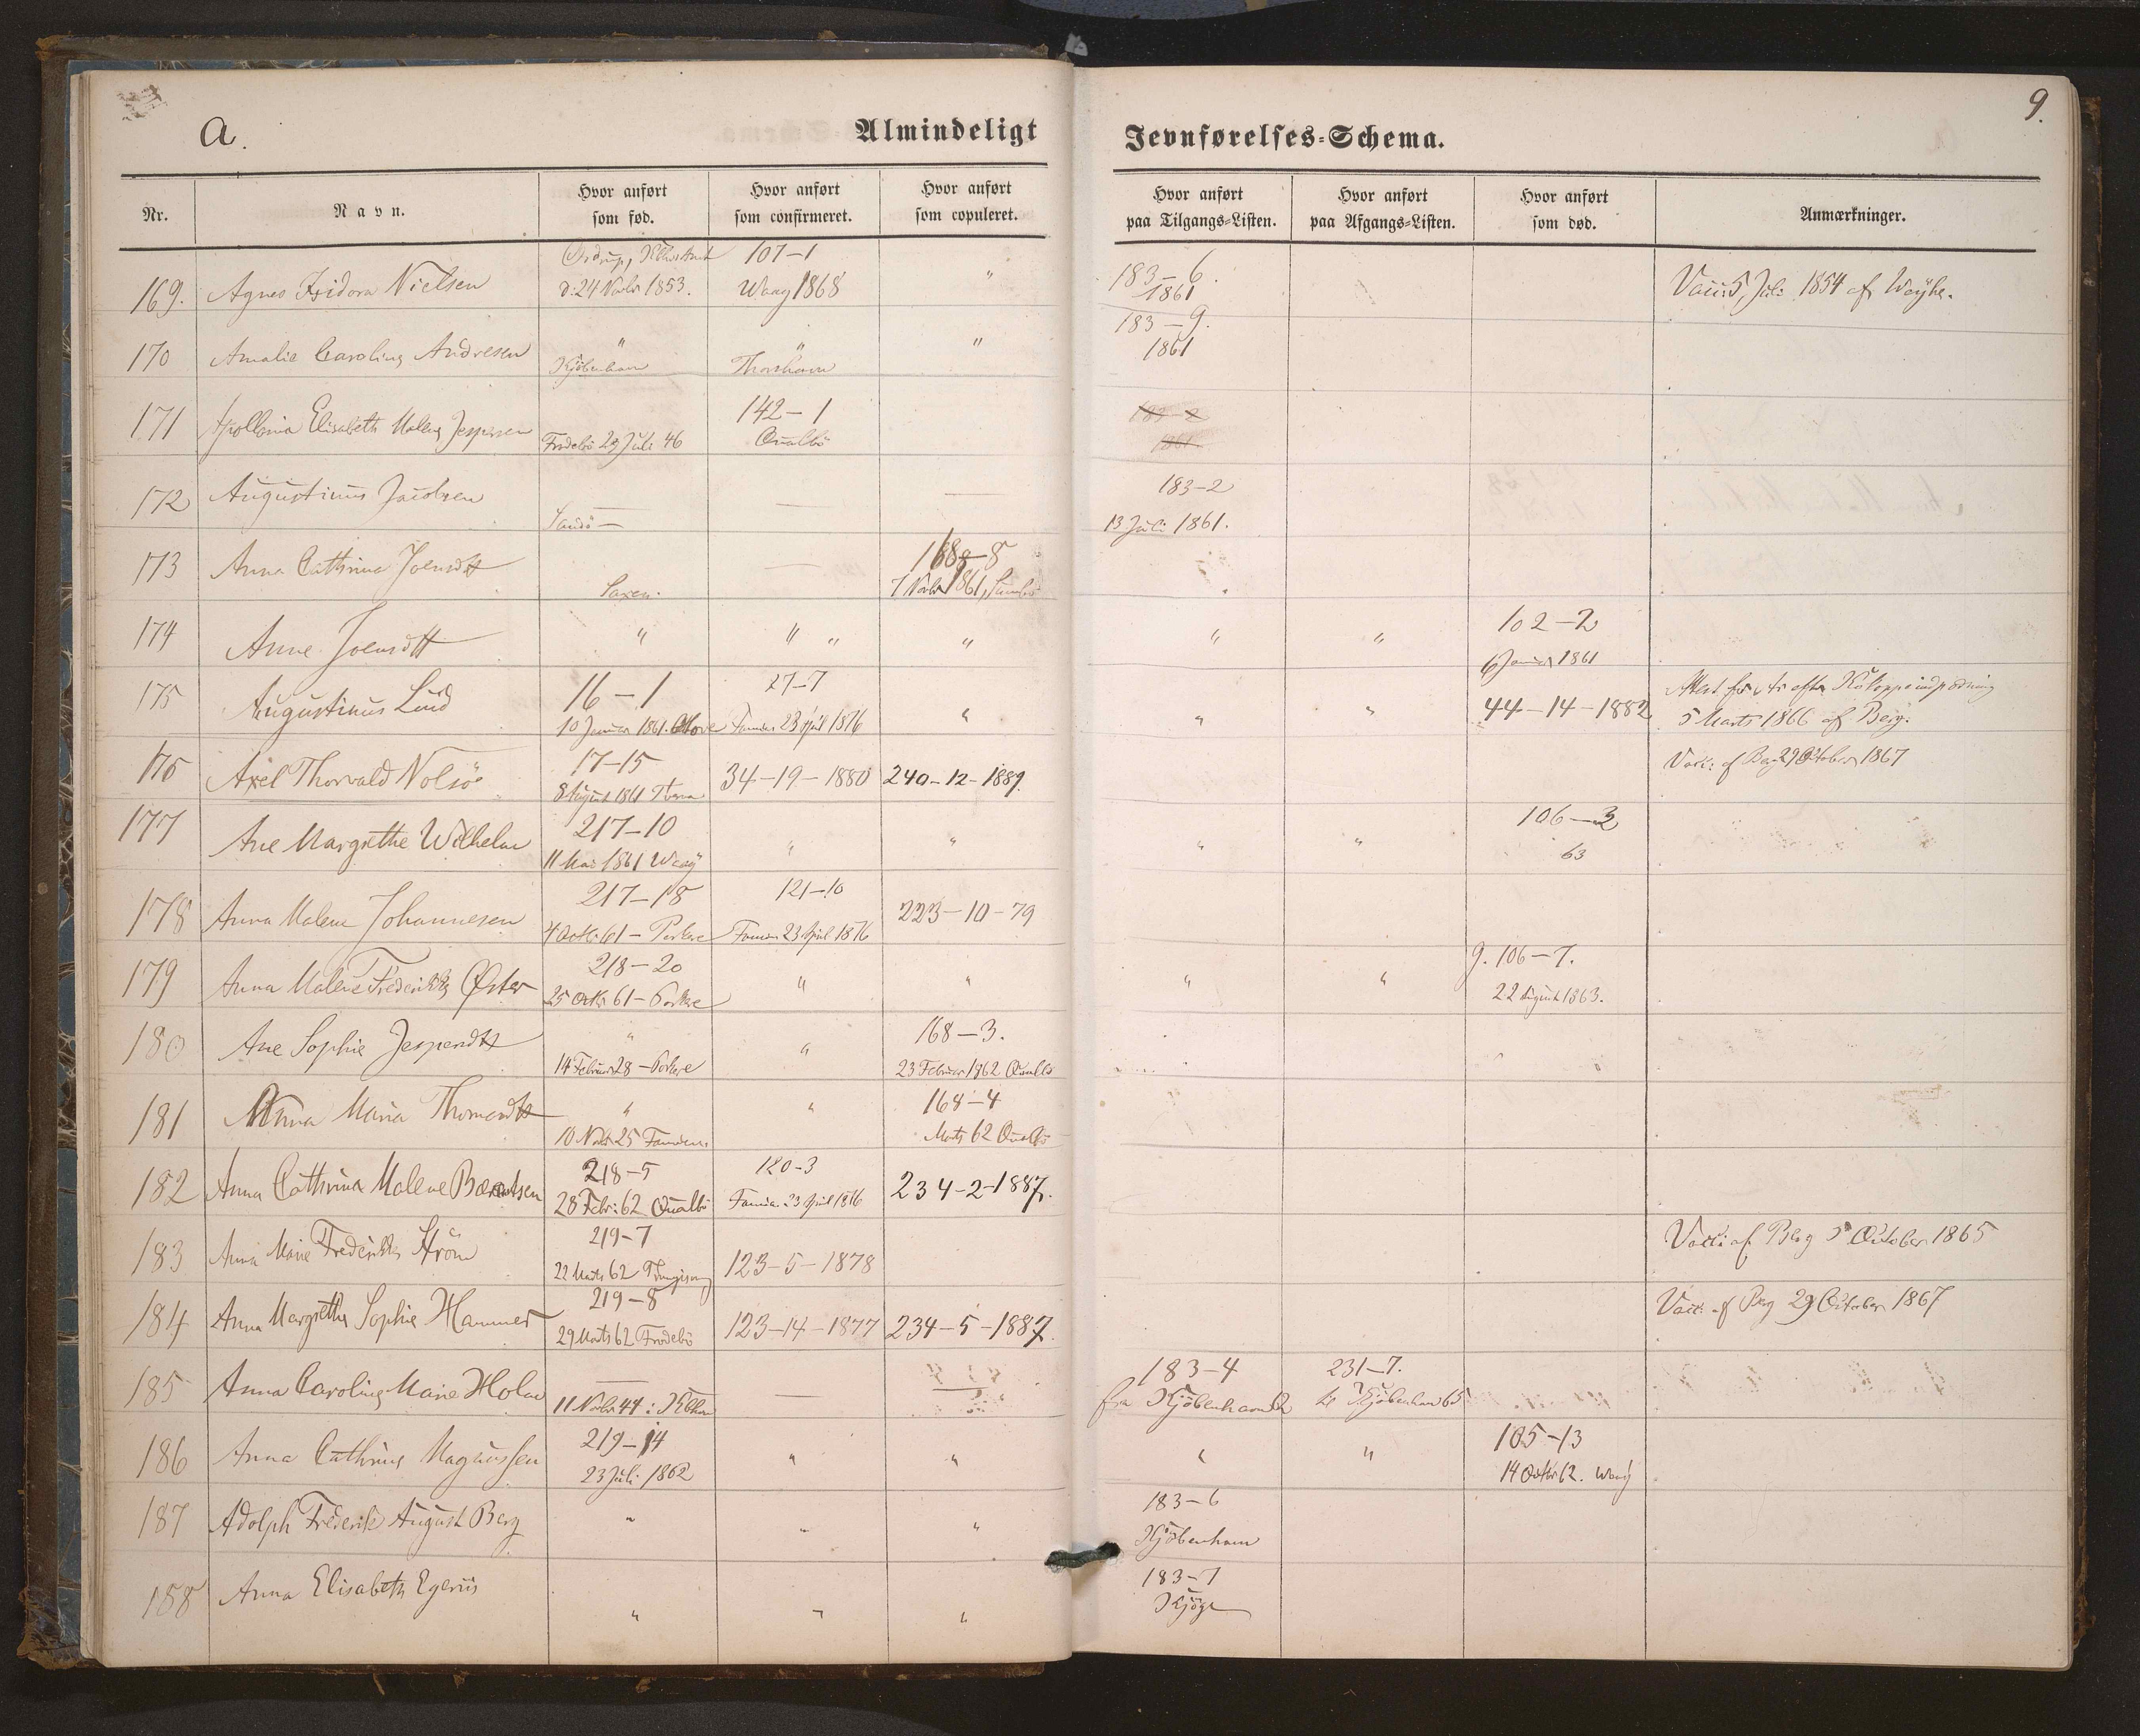 9.
A.
Almindeligt Jevnførelses-Schema.
Nr.
Navn.
Hvor anført som fød.
Hvor anført som confirmeret.
Hvor anført som copuleret.
Hvor anført paa Tilgangs-Listen.
Hvor anført paa Afgangs-Listen.
Hvor anført som død.
Anmærkninger.
169. Agnes Isidora Nielsen
d: 24 Novbr 1853.
107-1
Waag 1868
"
183-6.
1861
Vacc: 5 Juli 1854 af
170 Amalie Caroline Andresen
"
Kjöbenhavn
"
Thorshavn
"
183-9.
1861
171 Apollonia Elisabeth Malene Jespersen
Frodebö 29 Juli 46
142-1
Qualbö
183-2
1861
172 Augustinus Jacobsen
Sandö —
—
—
183-2
13 Juli 1861.
173 Anna Cathrine Joensdtt
Saxen.
—
168-8
7 Novbr 1861, Sumbö
174 Anne Joensdtt
"
" "
"
"
"
102-2
6 Januar 1861
175 Augustinus Lund
16-1
10 Januar 1861.
27-7
Famien 23 April 1876
"
"
"
44-14-1882
Attest for efter Kokoppeindpodning
5 Marts 1866 af Berg.
176 Axel Thorvald Nolsöe
17-15
8 August 1861 Tveraa
34-19-1880
240-12-1889.
Vacc: af Berg 29 October 1867
177 Ane Margrethe Wilhelm
217-10
11 Mai 1861 Waag
"
"
"
"
106-3
63
178 Anna Malene Johannesen
217-18
4 Octbr: 61 - Porkere
121-10
Famien 23 April 1876
223-10-79
179 Anna Malene Frederikke Öster
218-20
25 Octbr 61 - Porkere
"
"
"
"
9. 106-7.
22 August 1863.
180 Ane Sophie Jespersdtt
"
14 Februar 28 - Porkere
"
168-3.
23 Februar 1862 Qualbö
181 Anna Maria Thomasdtt
"
10 Novbr 25 Famien.
"
168-4
Marts 62 Qualbö
182 Anna Cathrina Malene Bærentsen
218-5
28 Febr: 62 Qualbö
120-3
Famien 23 April 1876
234-2-1887.
183 Anna Marie Frederikke Ström
219-7
22 Marts 62
123-5-1878
Vacc: af Berg 5 October 1865
184 Anna Margrethe Sophie Hammer
219-8
29 Marts 62 Frodebö
123-14-1877
234-5-1887.
Vacc: af Berg 29 October 1867
185 Anna Caroline Marie Holm
—
11 Novbr 44 : Kbhvn
—
183-4
fra Kjöbenhavn 62
231-7.
til Kjöbenhavn 65
186 Anna Cathrine Magnussen
219-14
23 Juli 1862
"
"
"
"
105-13
14 Octbr 62. Waag
187 Adolph Frederik August Berg
"
"
"
183-6
Kjöbenhavn
188 Anna Elisabeth Egeriis
"
"
"
183-7
Kjöge